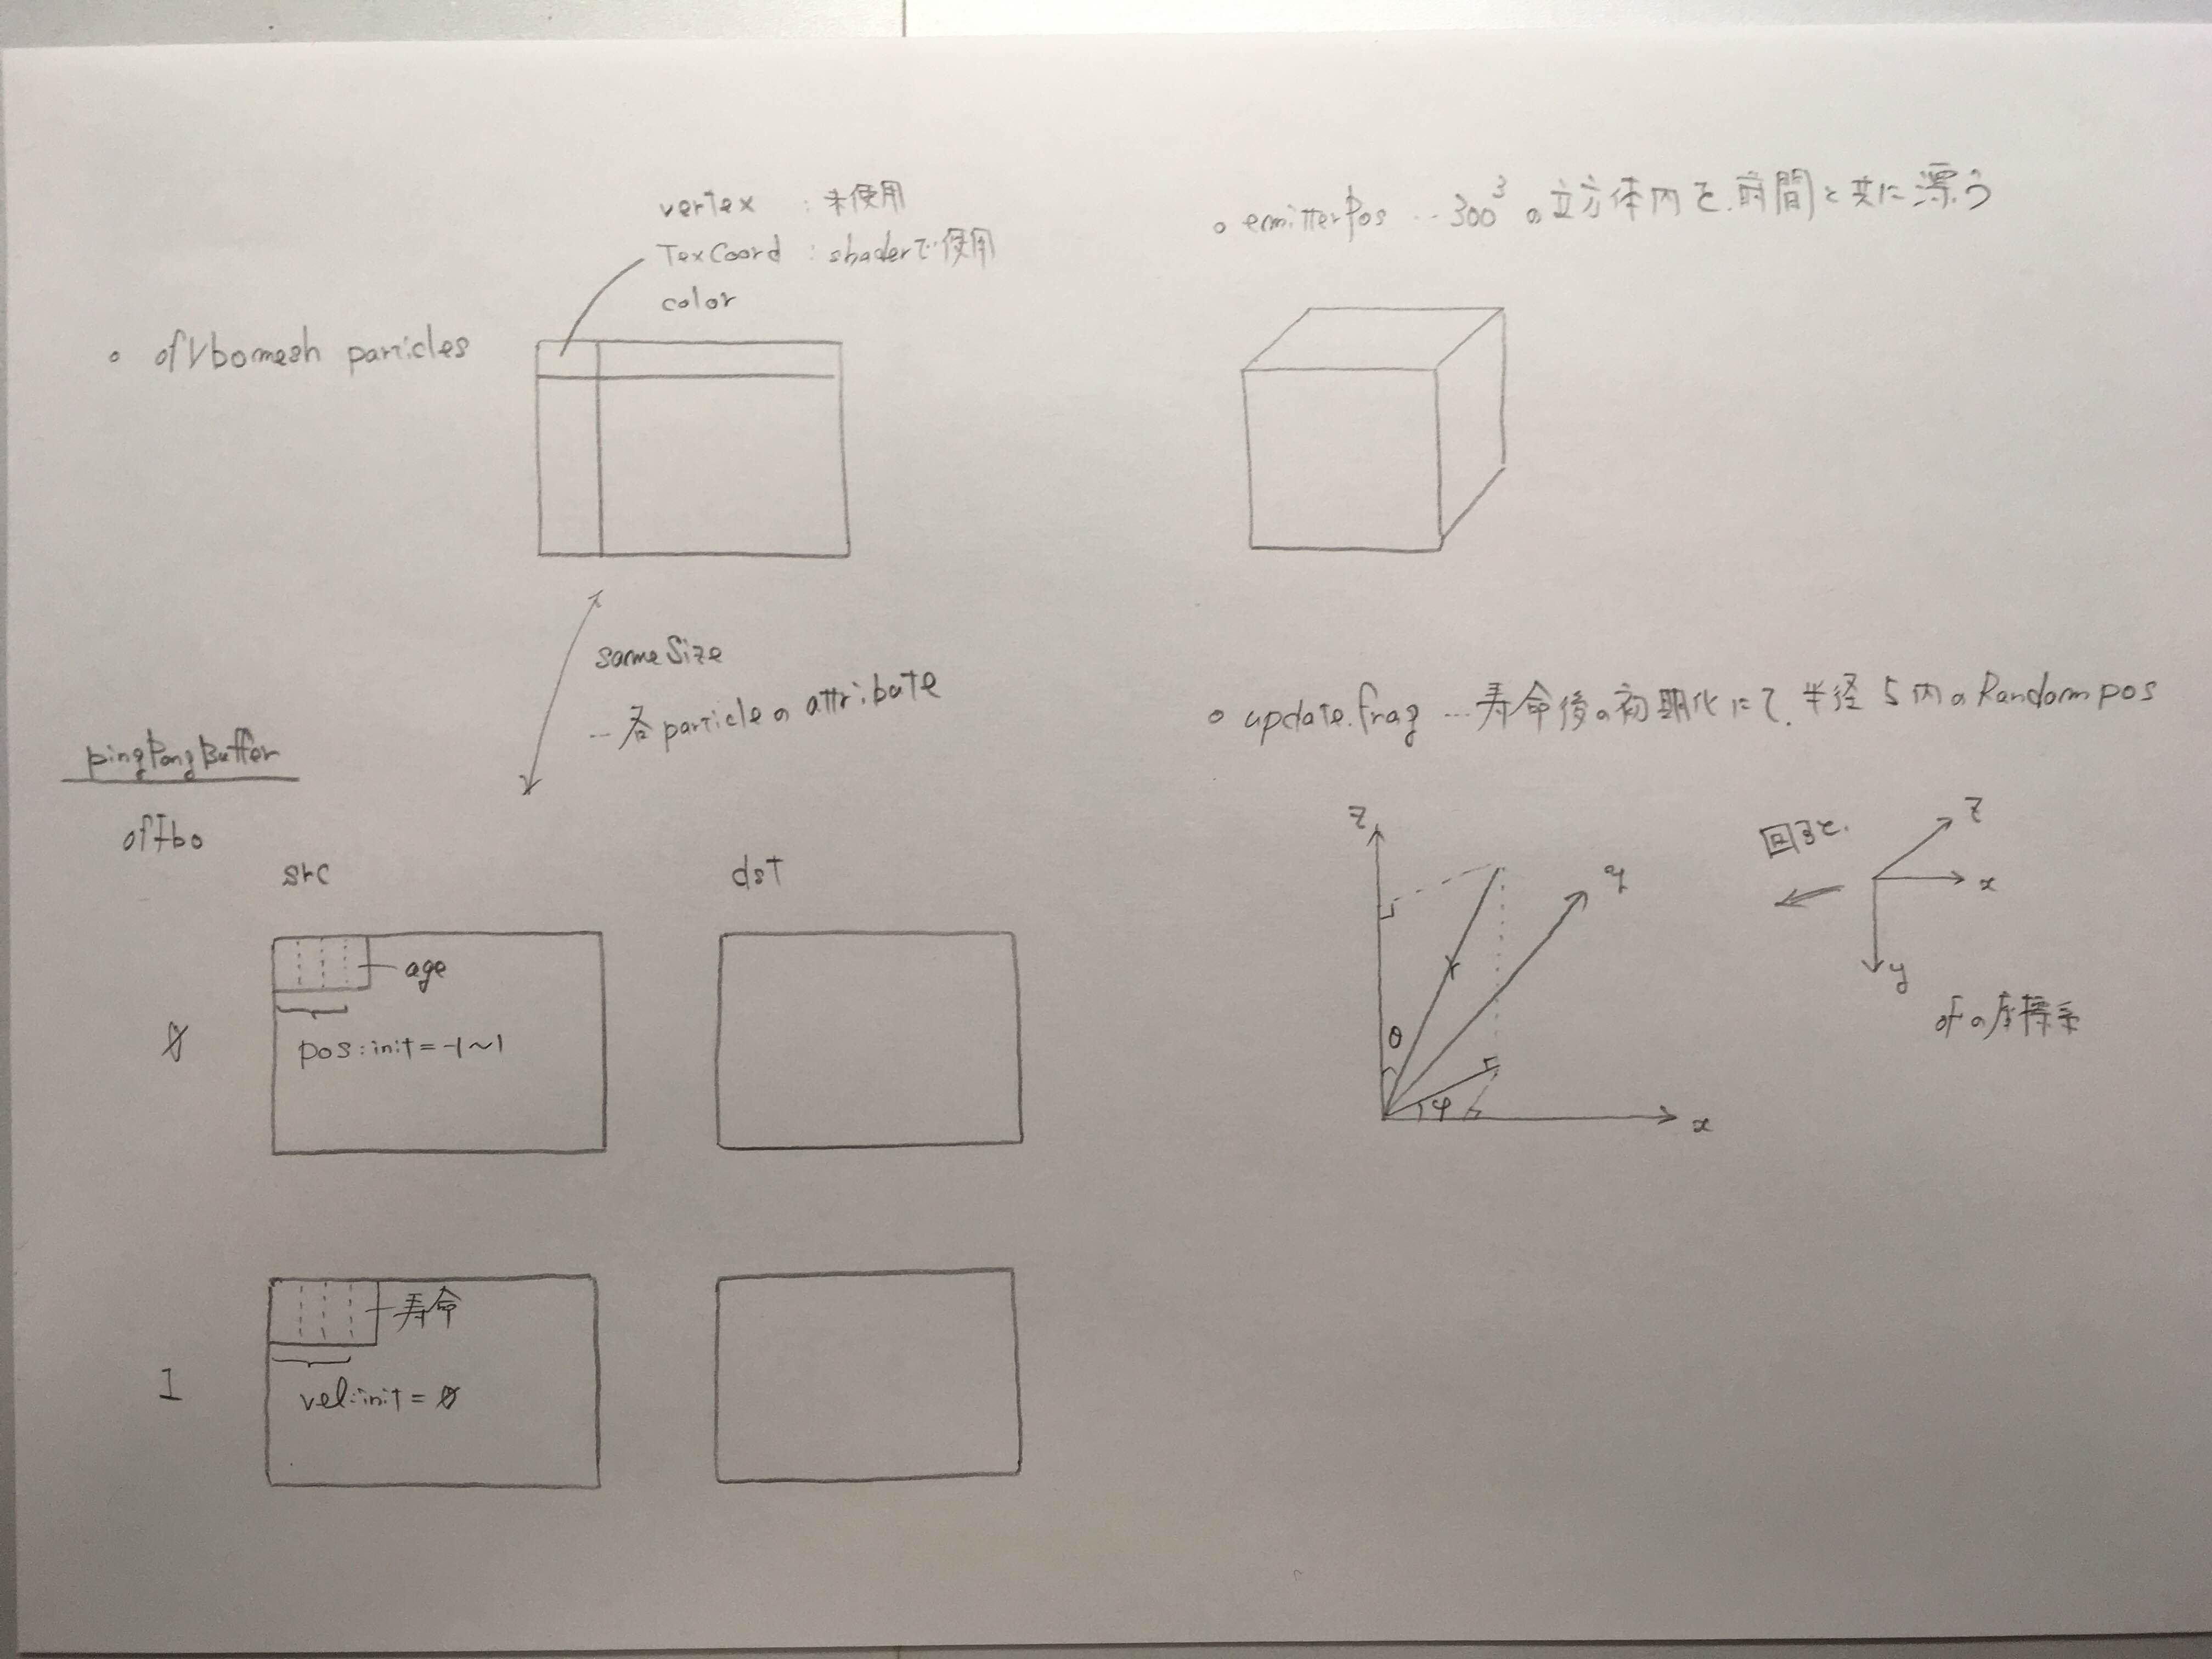 vertex : 未使用
TexCoord : shaderで使用
color
○ ofVbomesh particles
sameSize
… 各particleの attribute
pingPongBuffer
ofFbo
src
dst
0
age
pos:init=-1~1
1
寿命
vel:init=0
○ emitterPos … 300³の立方体内を、時間と共に漂う
○ update.frag … 寿命後の初期化にて、半径5内のRandom pos
z
y
r
θ
φ
x
回すと、
z
x
y
ofの座標系